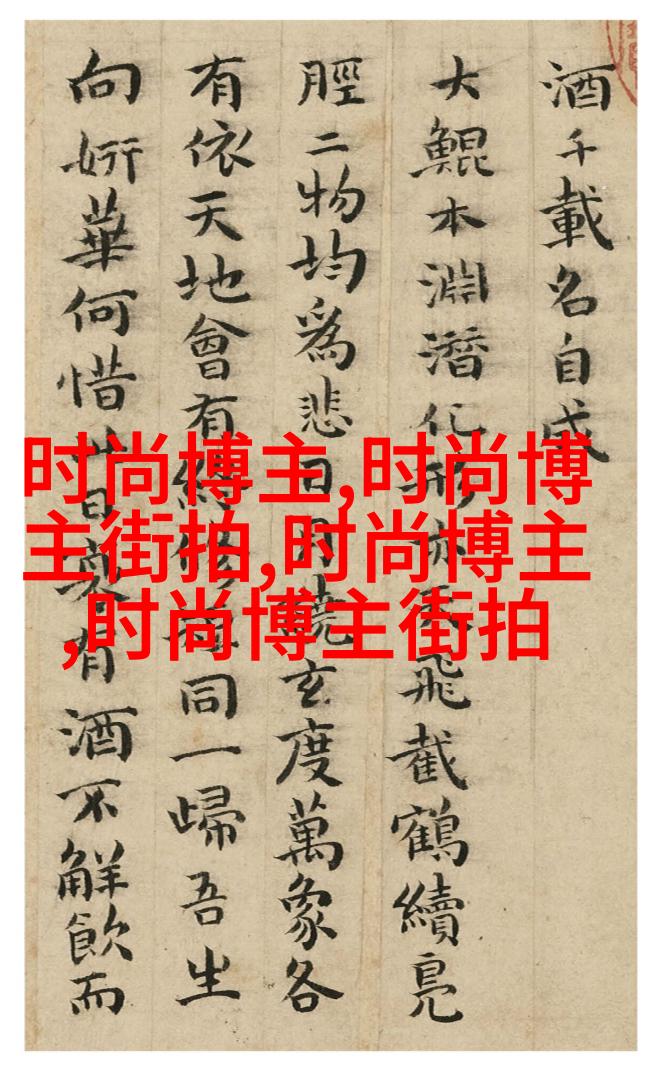 酒千載名自成
大鯤本淵潛化形飛截鶴續鳧
脛二物均爲悲日月繞玄度萬象各
有依天地會有同一歸吾生
向妍華何惜日有酒不解飲而
时尚博主,时尚博
主街拍,时尚博主
,时尚博主街拍